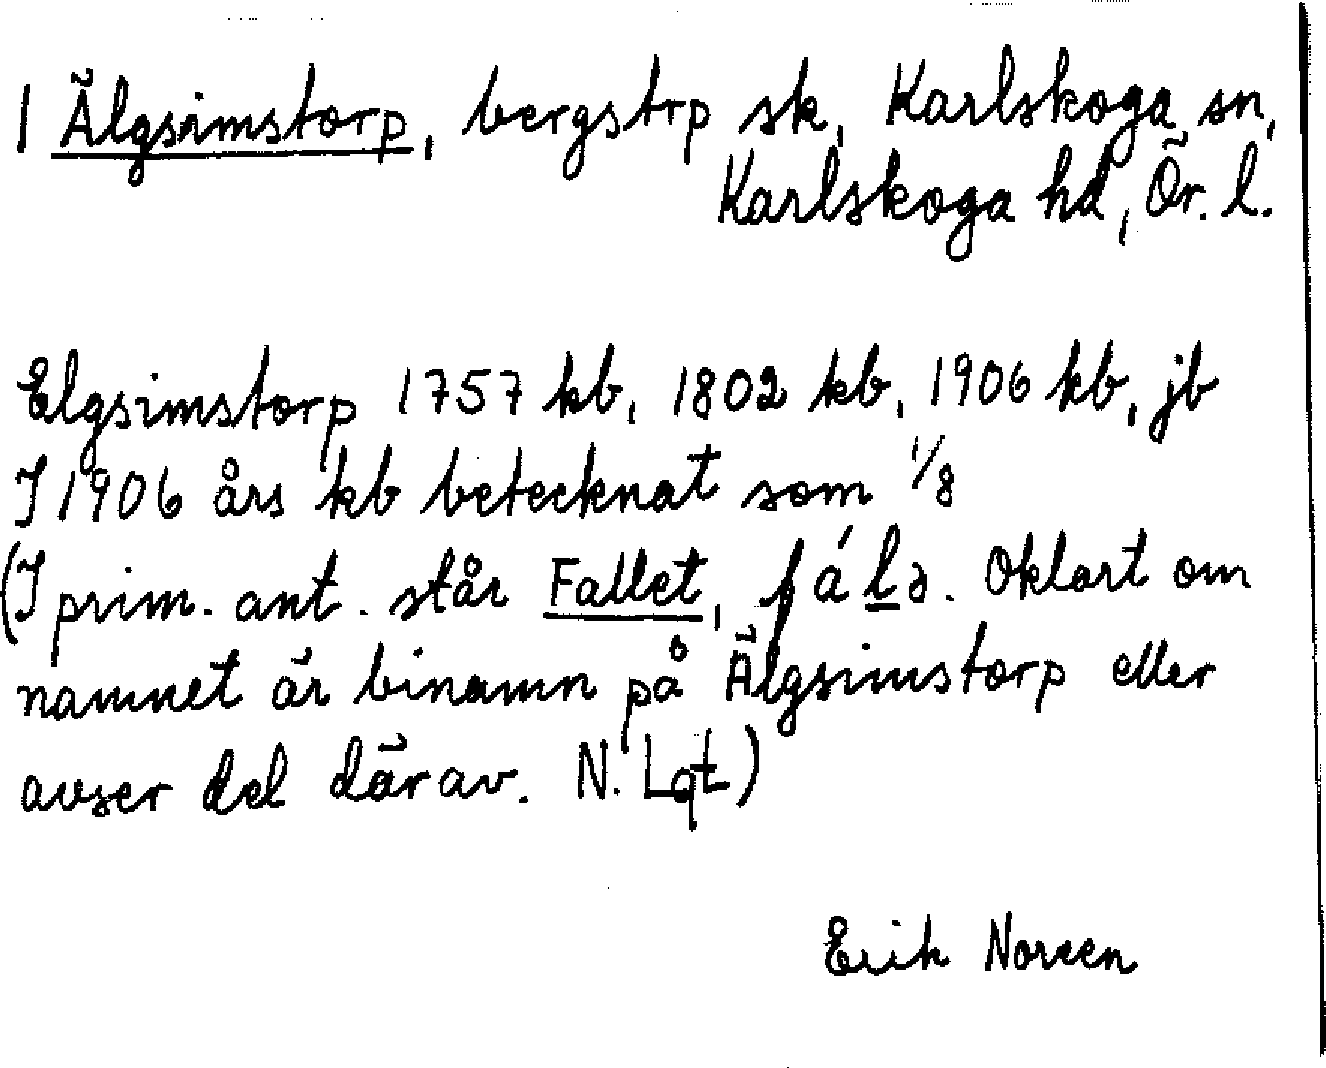 | Älgsimstorp, bergstrp sk, Karlskoga sn,
Karlskoga hd, Ör. l.
Elgsimstorp 1757 kb, 1802 kb, 1906 kb, jb
I 1906 års kb betecknat som 1/8
(I prim. ant. står Fallet, fálə. Oklart om
namnet är binamn på Älgsimstorp eller
avser del därav. N. Lqt)
Erik Noreen